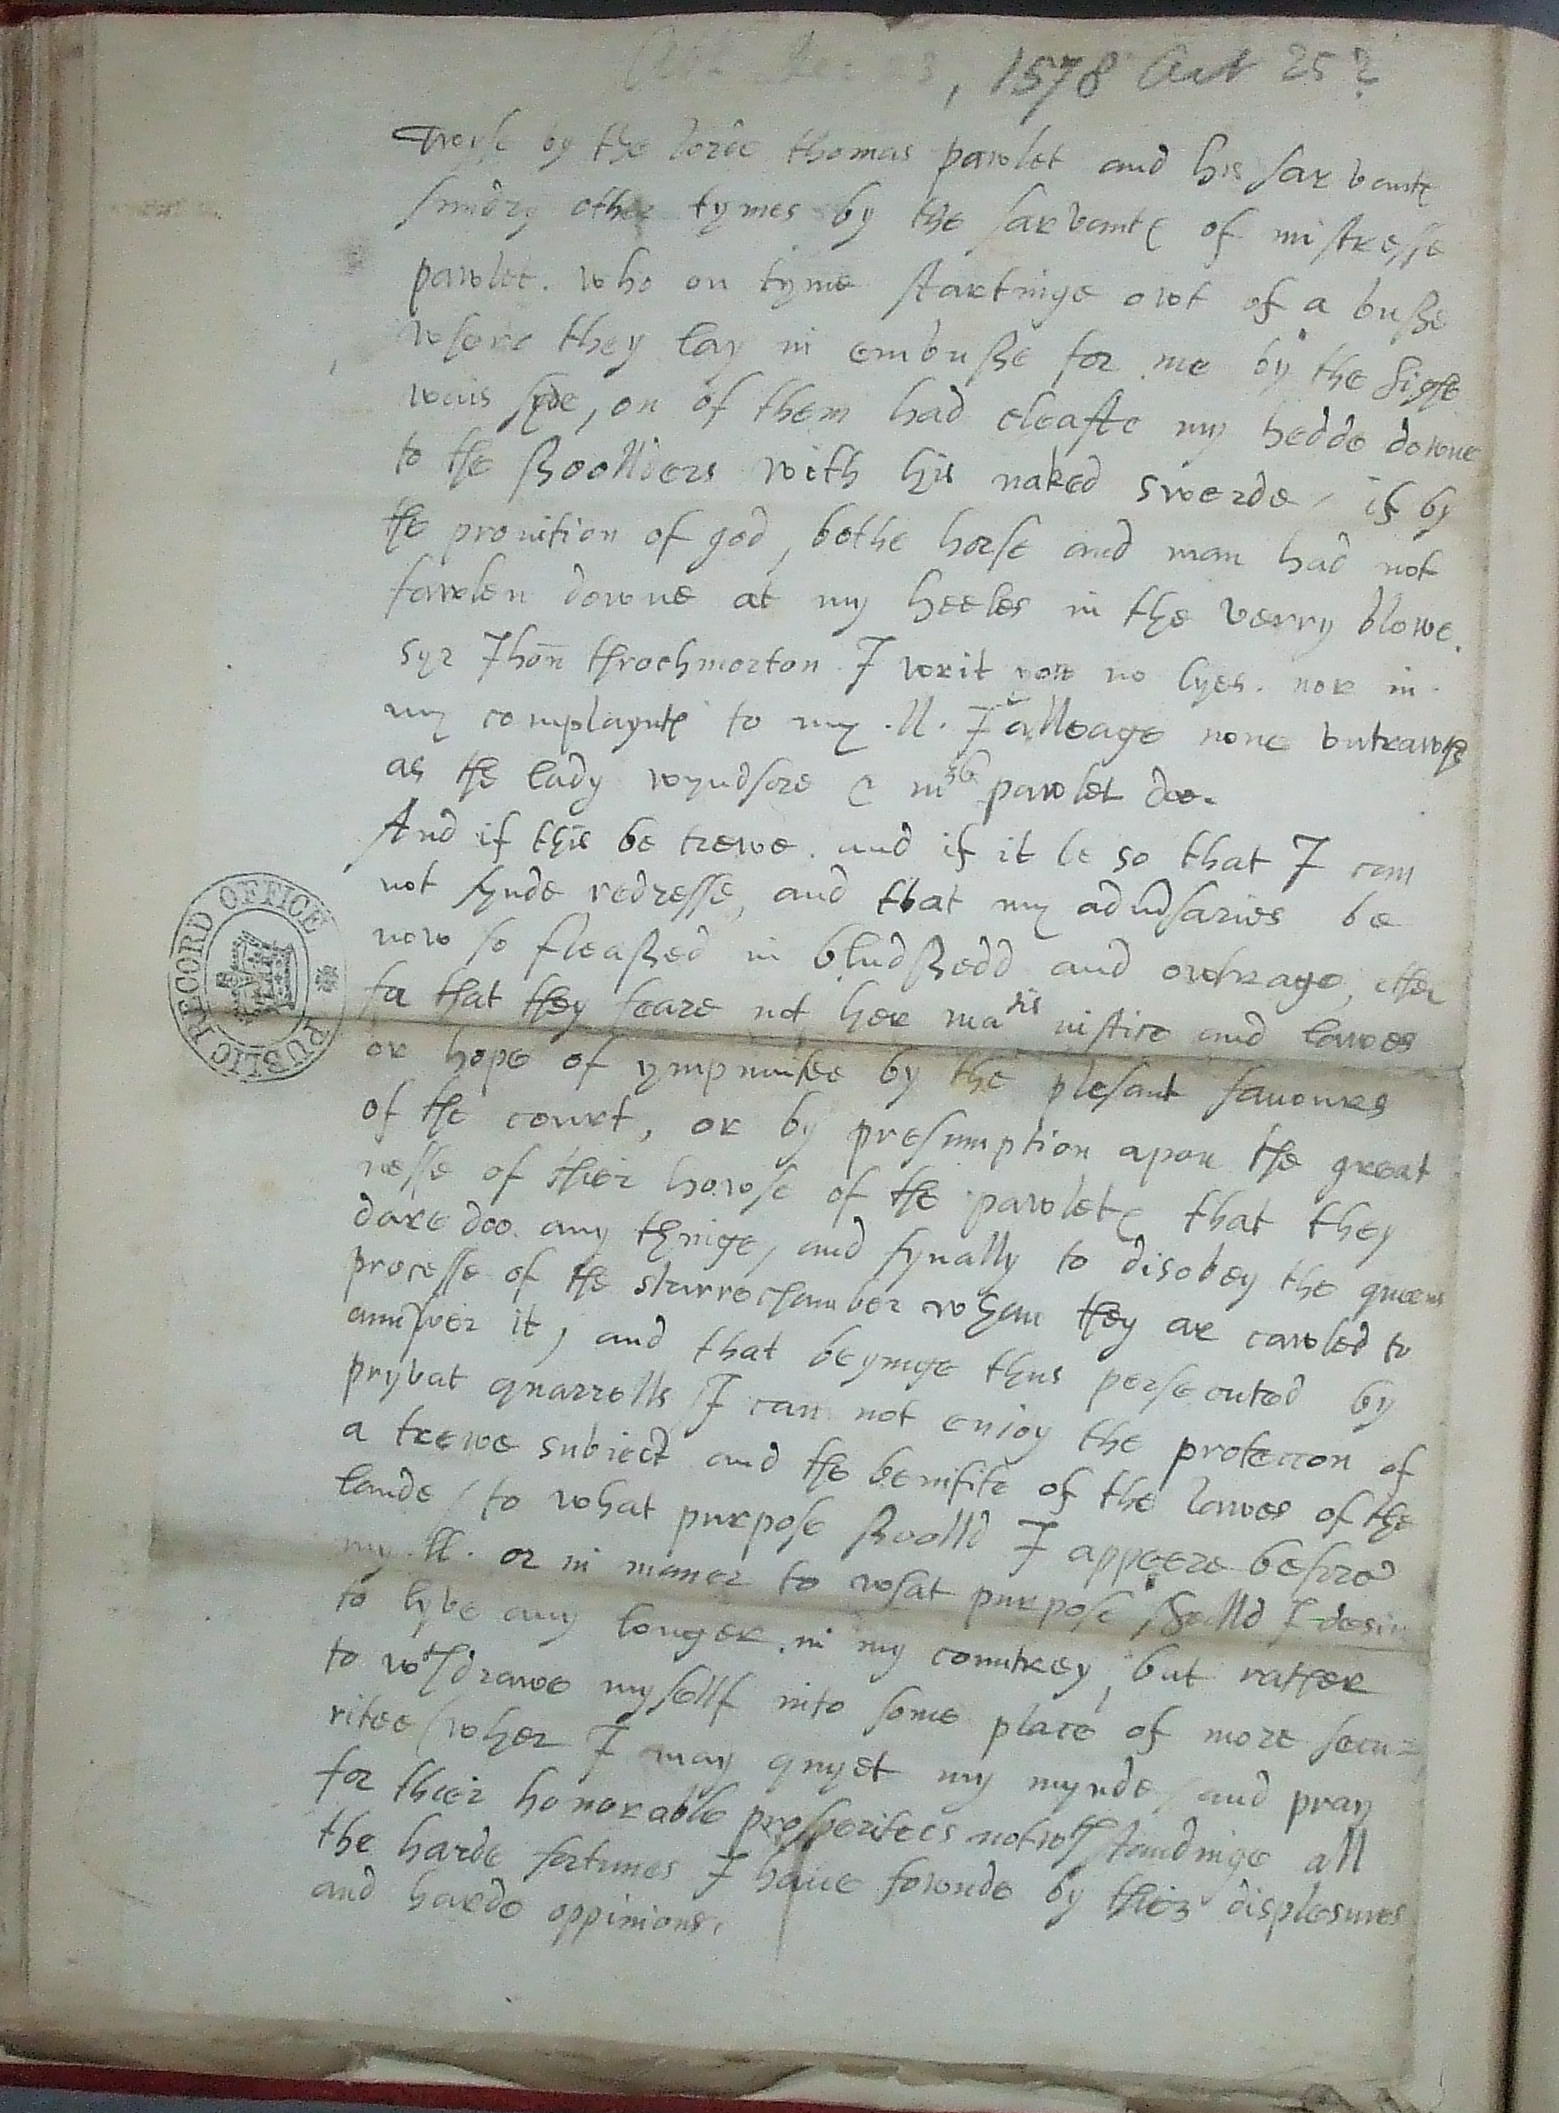 , 1578 Oct 25?
Twyse by the lorde thomas pawlet and his sarvantes
sundry other tymes by the sarvantes of mistresse
pawlet. who on tyme startinge owt of a bushe
where they lay in embushe for me by the highe
wais syde, on of them had cleafte my hedde downe
to the shoollders with his naked swerde / if by
the provition of god, bothe horse and man had not
fawlen downe at my heeles in the verry blowe.
Syr Jhon throchmorton I writ yow no lyes. nor in
my complayntes to my .ll. I alleage none vntrawthes
as the lady wyndsore & mres pawlet doe.
And if this be trewe. and if it be so that I can
not fynde redresse, and that my adversaries be
now so fleashed in bludshedd and owtrage, ether
for that they feare not her maties iustice and lawes
or hope of ympunitee by the plesant favoures
of the court, or by presumption apon the great
nesse of thier howse of the pawletes that they
dare doo any thinge, and fynally to disobey the queens
processe of the starrechamber whan they ar cawled to
answer it, and that beynge thus persecuted by
pryvat quarrells I can not enioy the proteccon of
a trewe subiect and the benifite of the lawes of the
lande / to what purpose shoolld I appeere before
my .ll. or in maner to what purpose shoolld I desir
to lyve any longer in my countrey, but rather
to wthdrawe mysellf into some place of more secu=
ritee / wher I may quyet my mynde / and pray
for thier honorable prosperitees notwthstandinge all
the harde fortunes I have fownde by thier displesures
and harde oppinions.
PUBLIC RECORD OFFICE